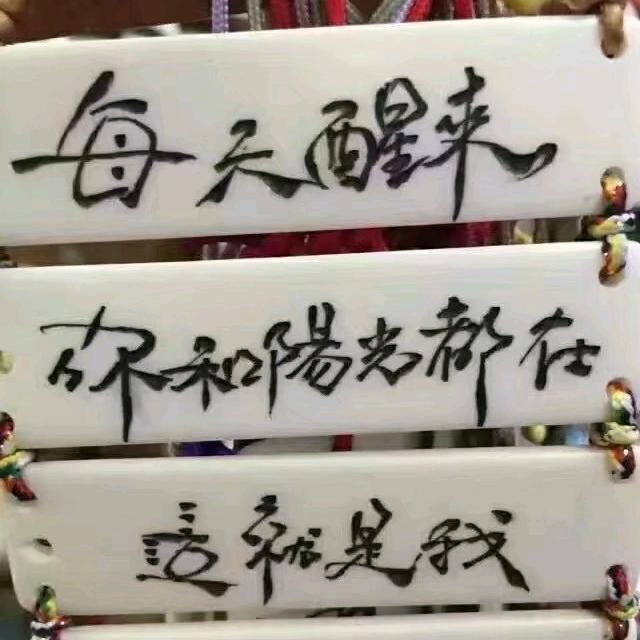 每天醒来
你和陽光都在
這就是我